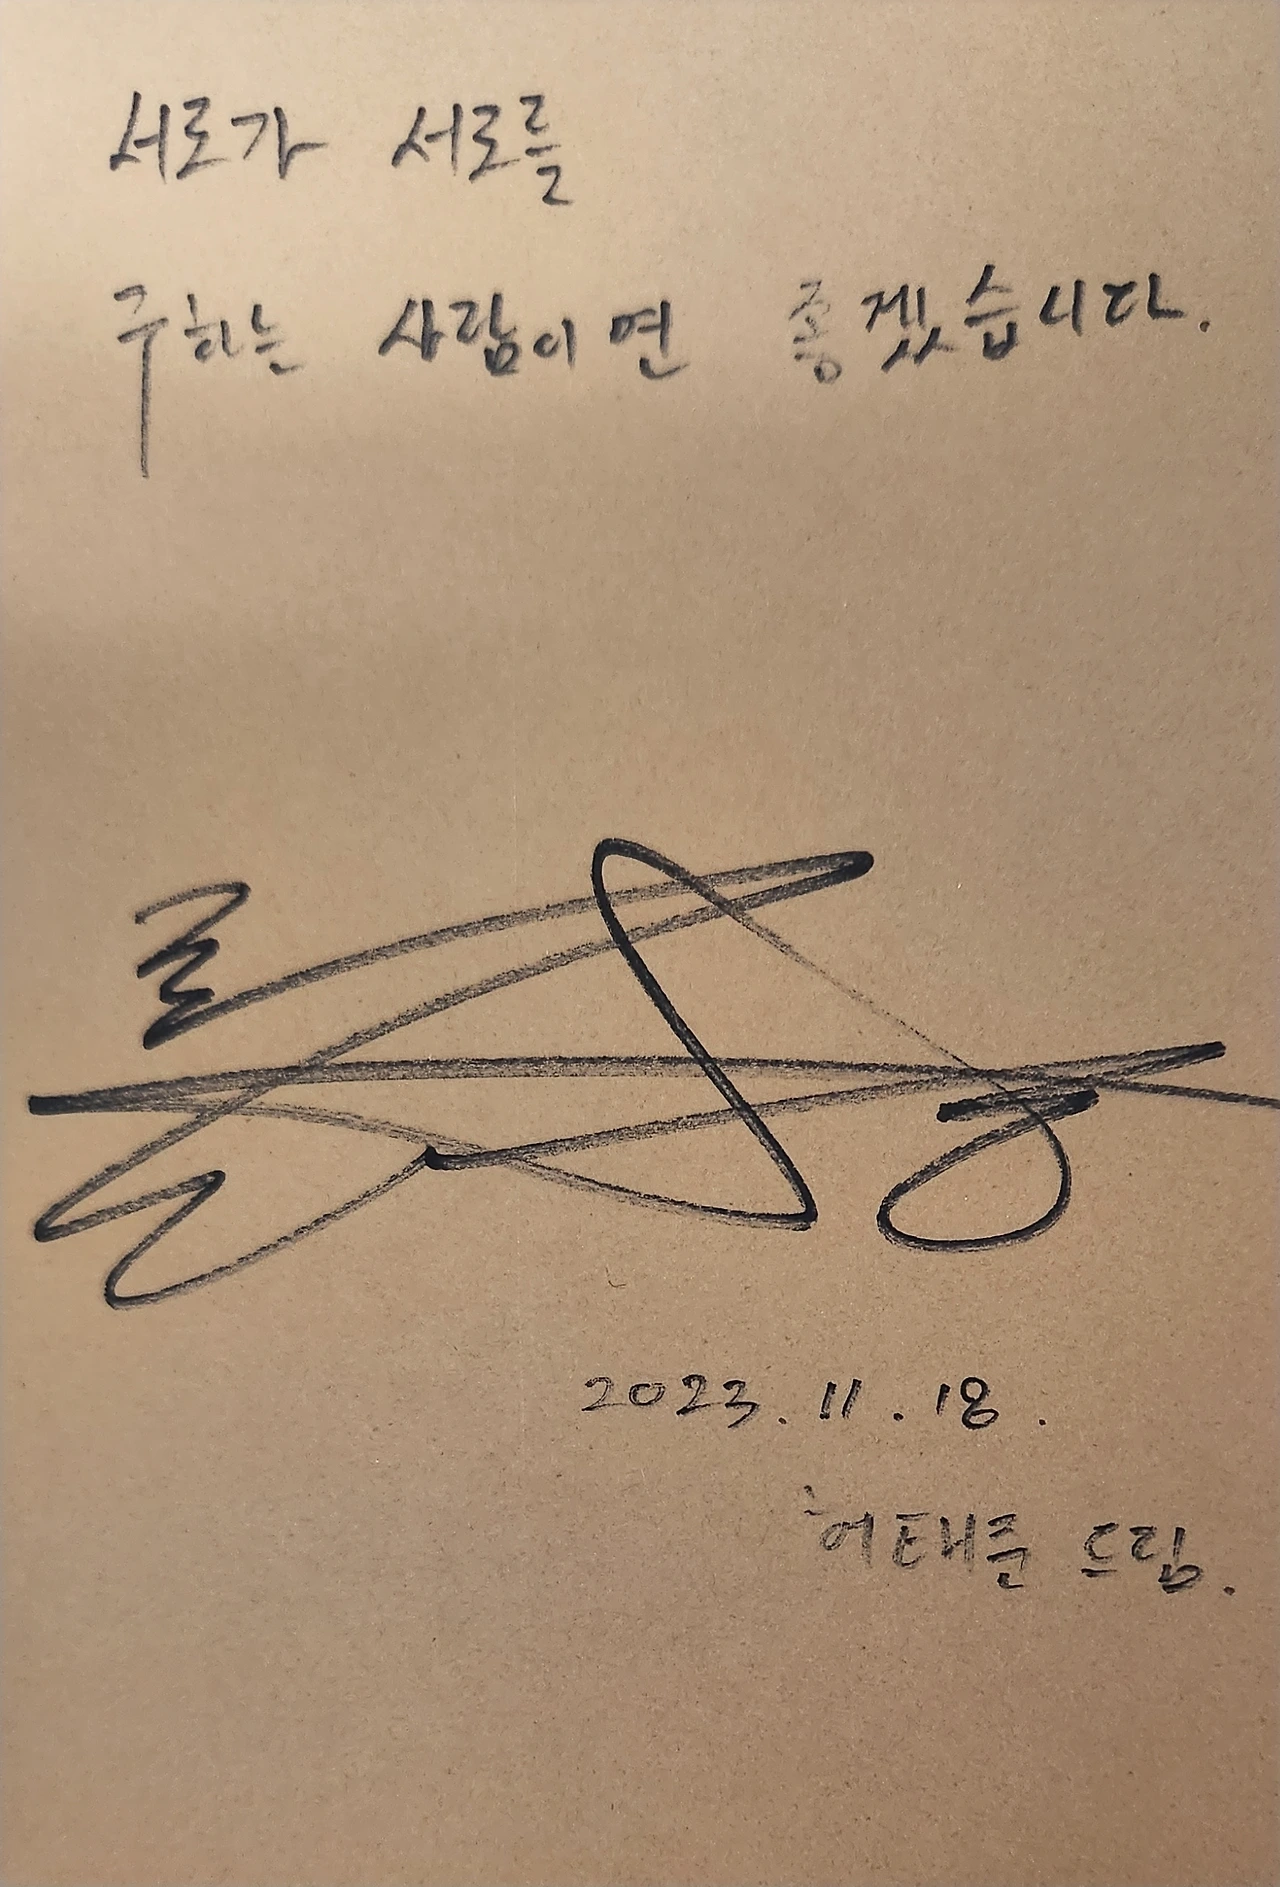 서로가 서로를
구하는 사람이면 좋겠습니다.
2023. 11. 18.
허태준 드림.